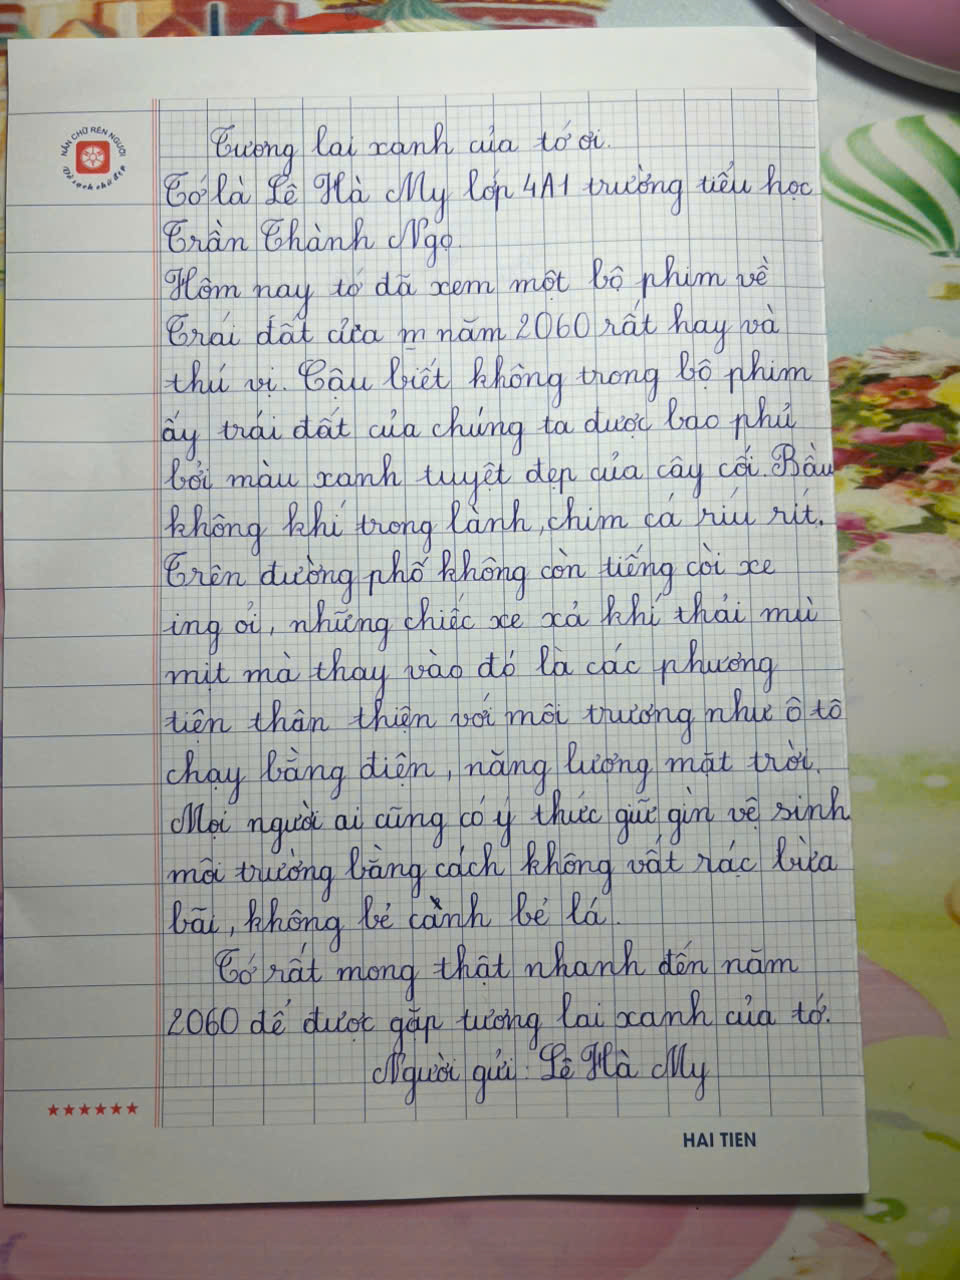 NẮN CHỮ RÈN NGƯỜI
Vở sạch chữ đẹp
Tương lai xanh của tớ ơi.
Tớ là Lê Hà My lớp 4A1 trường tiểu học
Trần Thành Ngọ.
Hôm nay tớ đã xem một bộ phim về
Trái đất của m năm 2060 rất hay và
thú vị. Cậu biết không trong bộ phim
ấy trái đất của chúng ta được bao phủ
bởi màu xanh tuyệt đẹp của cây cối. Bầu
không khí trong lành, chim cá ríu rít.
Trên đường phố không còn tiếng còi xe
ing ỏi, những chiếc xe xả khí thải mù
mịt mà thay vào đó là các phương
tiện thân thiện với môi trường như ô tô
chạy bằng điện, năng lượng mặt trời.
Mọi người ai cũng có ý thức giữ gìn vệ sinh
môi trường bằng cách không vất rác bừa
bãi, không bẻ cành bẻ lá.
Tớ rất mong thật nhanh đến năm
2060 để được gặp tương lai xanh của tớ.
Người gửi: Lê Hà My
HAI TIEN